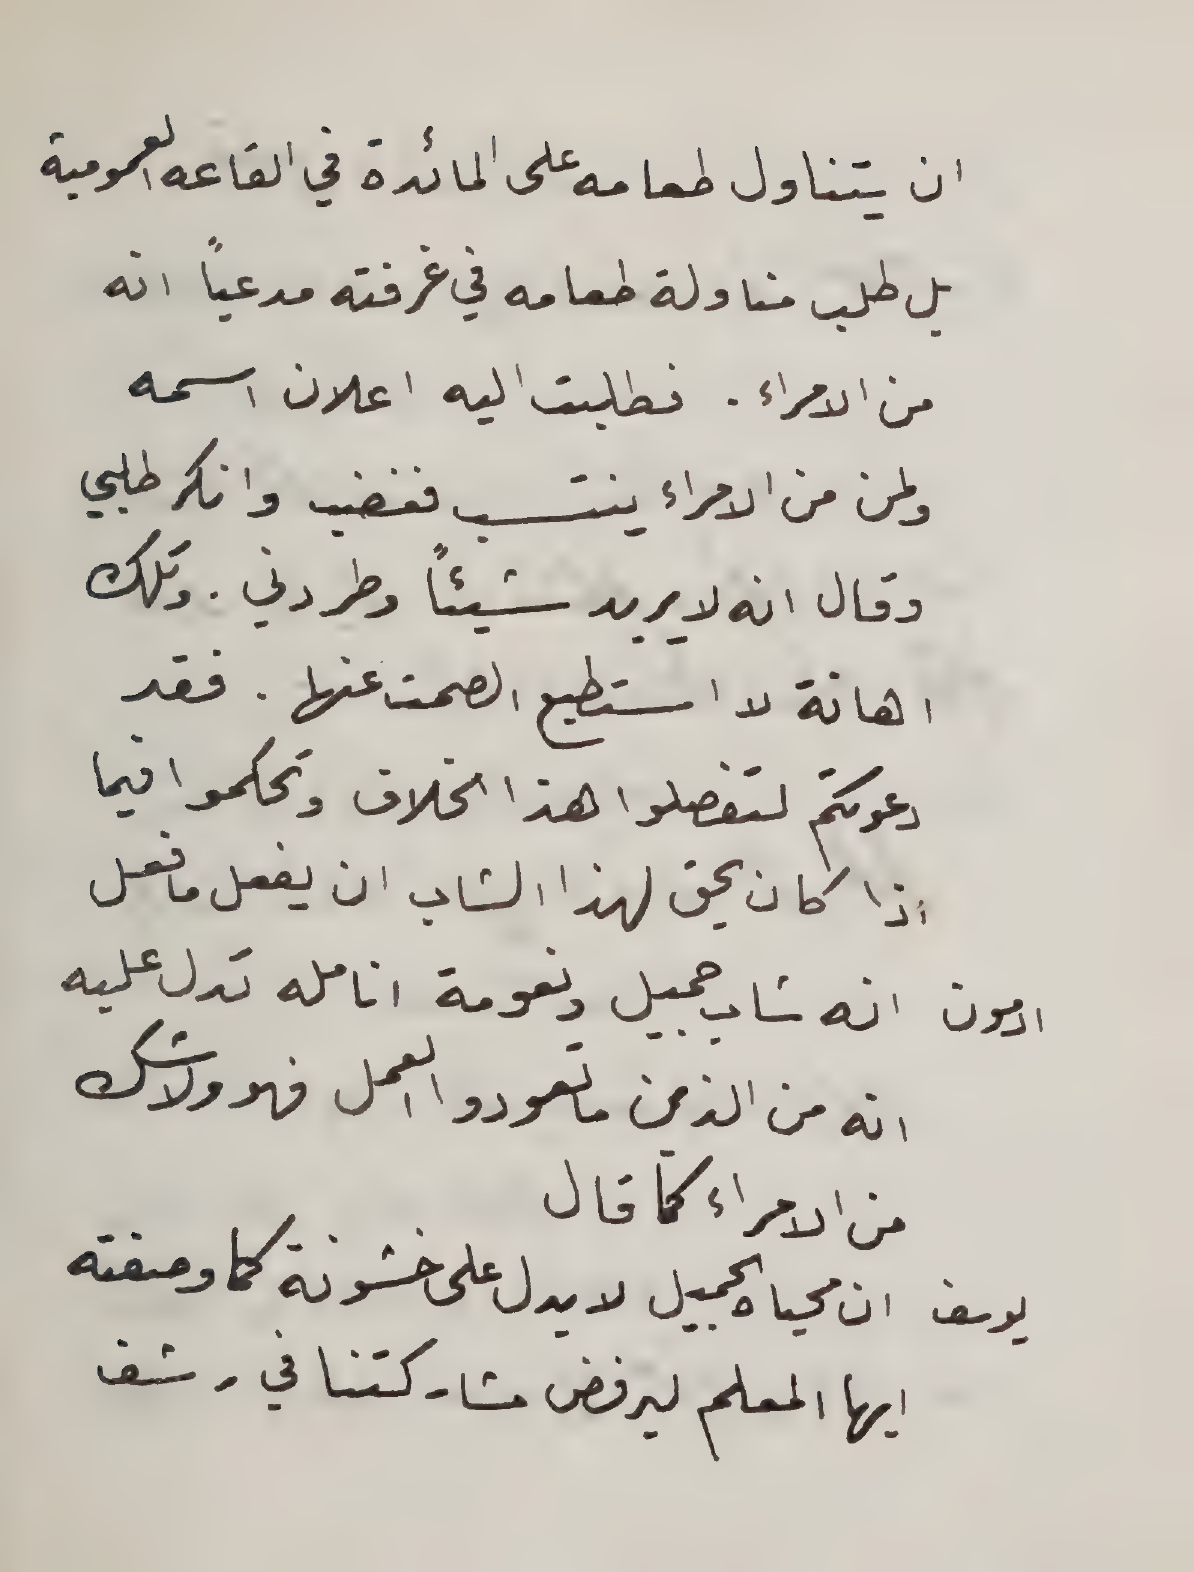 ان يتناول طعامه على المائدة في القاعه العمومية
بل طلب مناولة طعامه في غرفته مدعياً انه
من الامراء . فطلبت اليه اعلان اسمه
ولمن من الامراء ينتسب فغضب وانكر طلبي
وقال انه لا يريد شيئاً وطردني . وتلك
اهانة لا استطيع الصمت عنها . فقد
دعوتكم لتفصلوا هذا الخلاف وتحكموا فيما
اذا كان يحق لهذا الشاب ان يفعل ما فعل
ادمون انه شاب جميل ونعومة انامله تدل عليه
انه من الذين ما تعودوا العمل فهو ولا شك
من الامراء كما قال
يوسف ان محياه الجميل لا يدل على خشونة كما وصفته
ايها المعلم ليرفض مشاركتنا في رشف